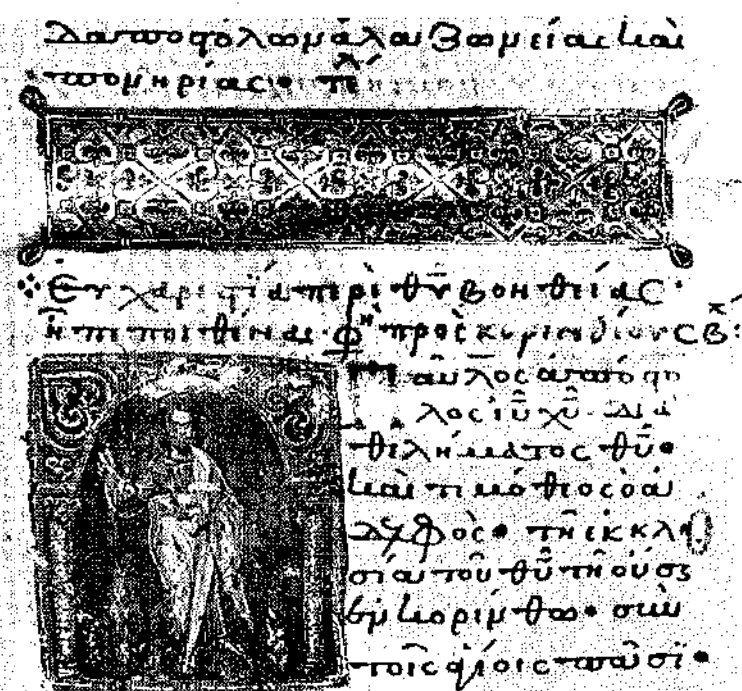 δαποστόλων ἀλαζωνείας καὶ
πονηρίας·
Εὐχαριστία περὶ θ̅υ̅ βοηθείας·
πεποιθέναι· πρὸς κορινθίους β̅:
Παῦλος ἀπόστο
λος ι̅υ̅ χ̅υ̅ διὰ
θελήματος θ̅υ̅·
καὶ τιμόθεος ὁ ἀ
δελφὸς· τῆ ἐκκλη
σίαι τοῦ θ̅υ̅ τῆ οὔση
ἐν κορίνθω· σὺν
τοῖς ἁγίοις πᾶσι·